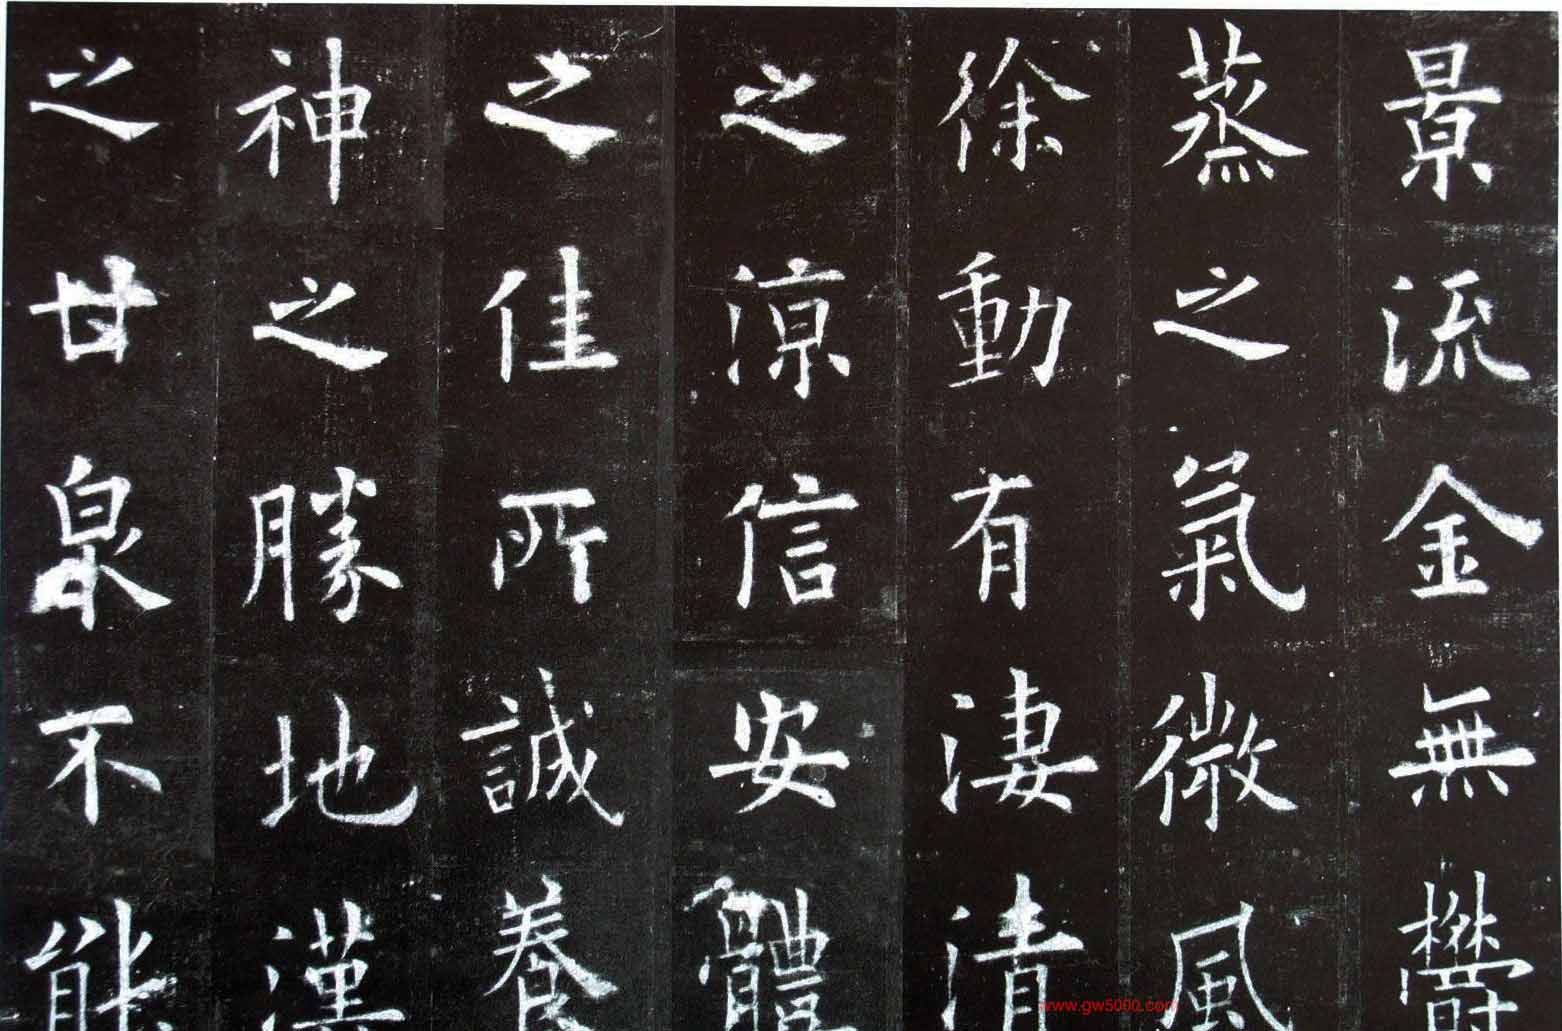 景流金無欝
蒸之氣微風
徐動有淒清
之涼信安體
之佳所誠養
神之勝地漢
之甘泉不能
www.gw5000.com